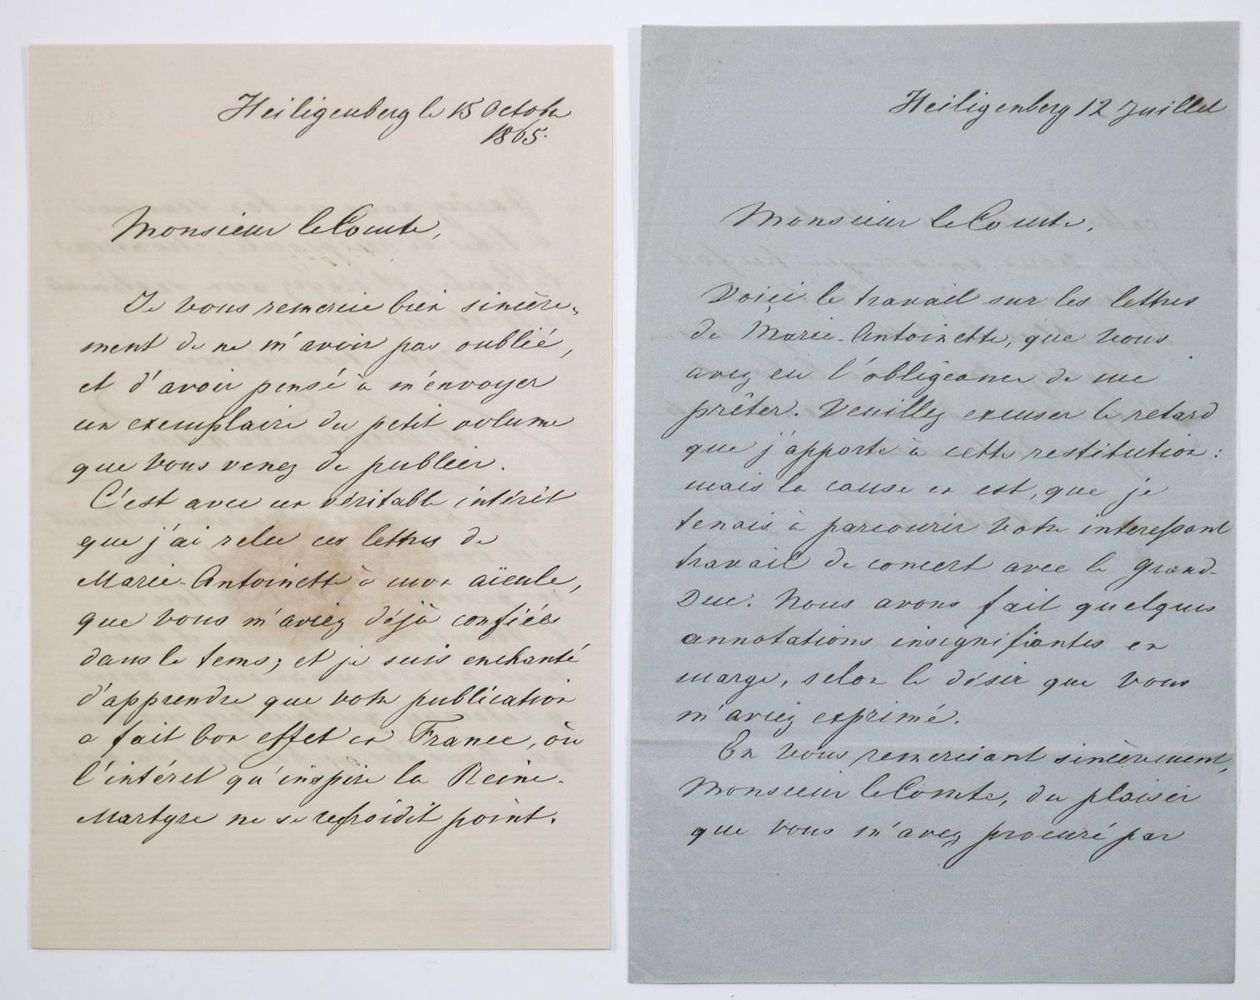 Heiligenberg le 15 Octobre
1865.
Monsieur le Comte,
Je vous remercie bien sincère-
ment de ne m'avoir pas oublié,
et d'avoir pensé à m'envoyer
un exemplaire du petit volume
que vous venez de publier.
C'est avec un véritable intérêt
que j'ai relu ces lettres de
Marie-Antoinette à mon aïeule,
que vous m'aviez déjà confiées
dans le tems; et je suis enchanté
d'apprendre que votre publication
a fait bon effet en France, où
l'intérêt qu'inspire la Reine-
Martyre ne se refroidit point.
Heiligenberg 12 Juillet
Monsieur le Comte,
Voici le travail sur les lettres
de Marie-Antoinette, que vous
avez eu l'obligeance de me
prêter. Veuillez excuser le retard
que j'apporte à cette restitution:
mais la cause en est, que je
tenais à parcourir votre interessant
travail de concert avec le Grand-
Duc. Nous avons fait quelques
annotations insignifiantes en
marge, selon le désir que vous
m'aviez exprimé.
En vous remerciant sincèrement,
Monsieur le Comte, du plaisir
que vous m'avez procuré par